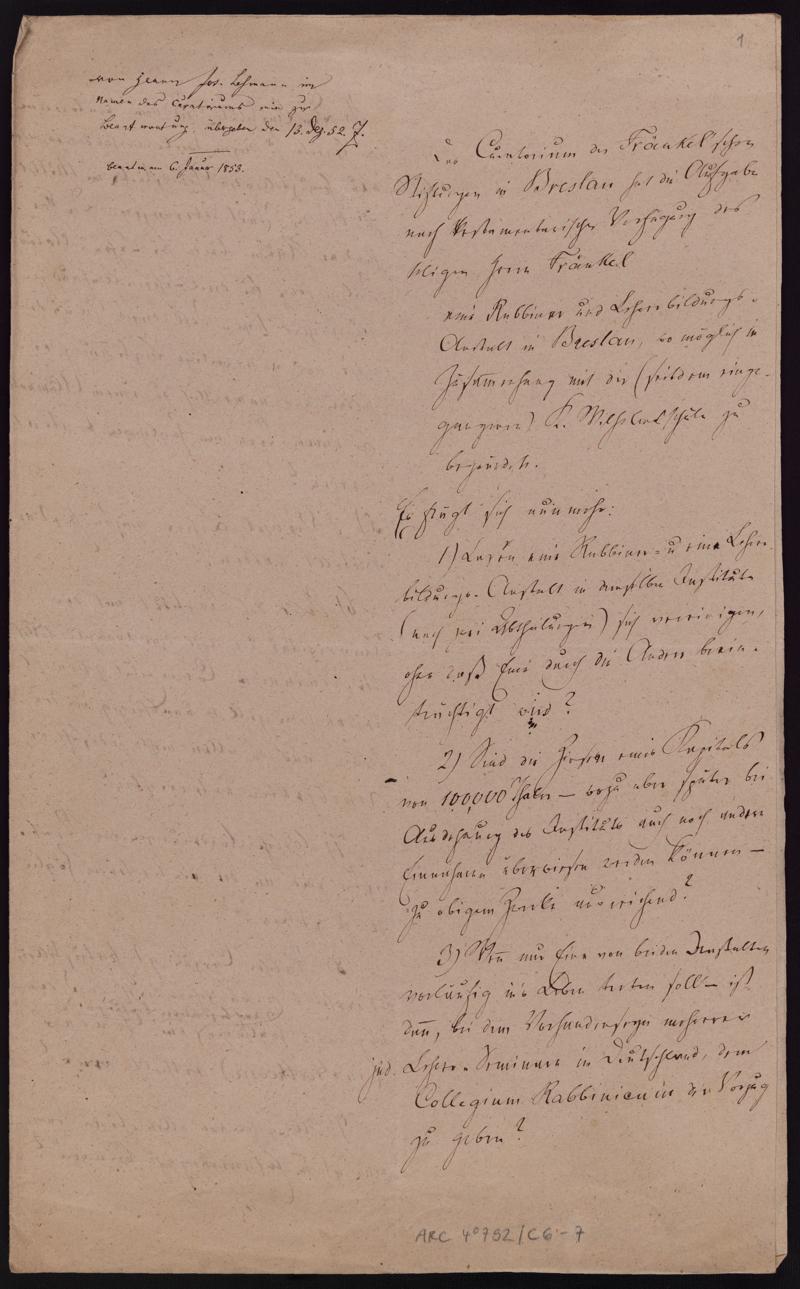 1
von Herrn Jos. Lehmann im
Namen des Curatoriums mir zur
Beantwortung übergeben den 13. Dez. 52. Z.
beantw. am 6. Januar 1853.
Das Curatorium der Fränkel'schen
Stiftungen in Breslau hat die Aufgabe
nach testamentarischer Verfügung des
seligen Herrn Fränkel
eine Rabbiner und Lehrerbildungs-
Anstalt in Breslau, wo möglich in
Zusammenhang mit der (seitdem einge-
gangenen) K. Wilhelmsschule zu
begründen.
Es frägt sich nunmehr:
1) Lassen eine Rabbiner- u eine Lehrer-
bildungs-Anstalt in demselben Institute
(nach zwei Abtheilungen) sich vereinigen,
ohne daß Eine durch die Andere beein-
trächtigt wird?
2) Sind die Zinsen eines Kapitals
von 100,000 Thaler — wozu aber später bei
Ausdehnung des Instituts auch noch andere
Einnahmen überwiesen werden können —
zu obigem Zwecke ausreichend?
3) Wenn nur Eine von beiden Anstalten
vorläufig in's Leben treten soll — ist
dann, bei dem Vorhandenseyn mehrerer
jüd. Lehrer-Seminare in Deutschland, dem
Collegium Rabbinicum der Vorzug
zu geben?
ARC 4° 792/C6-7